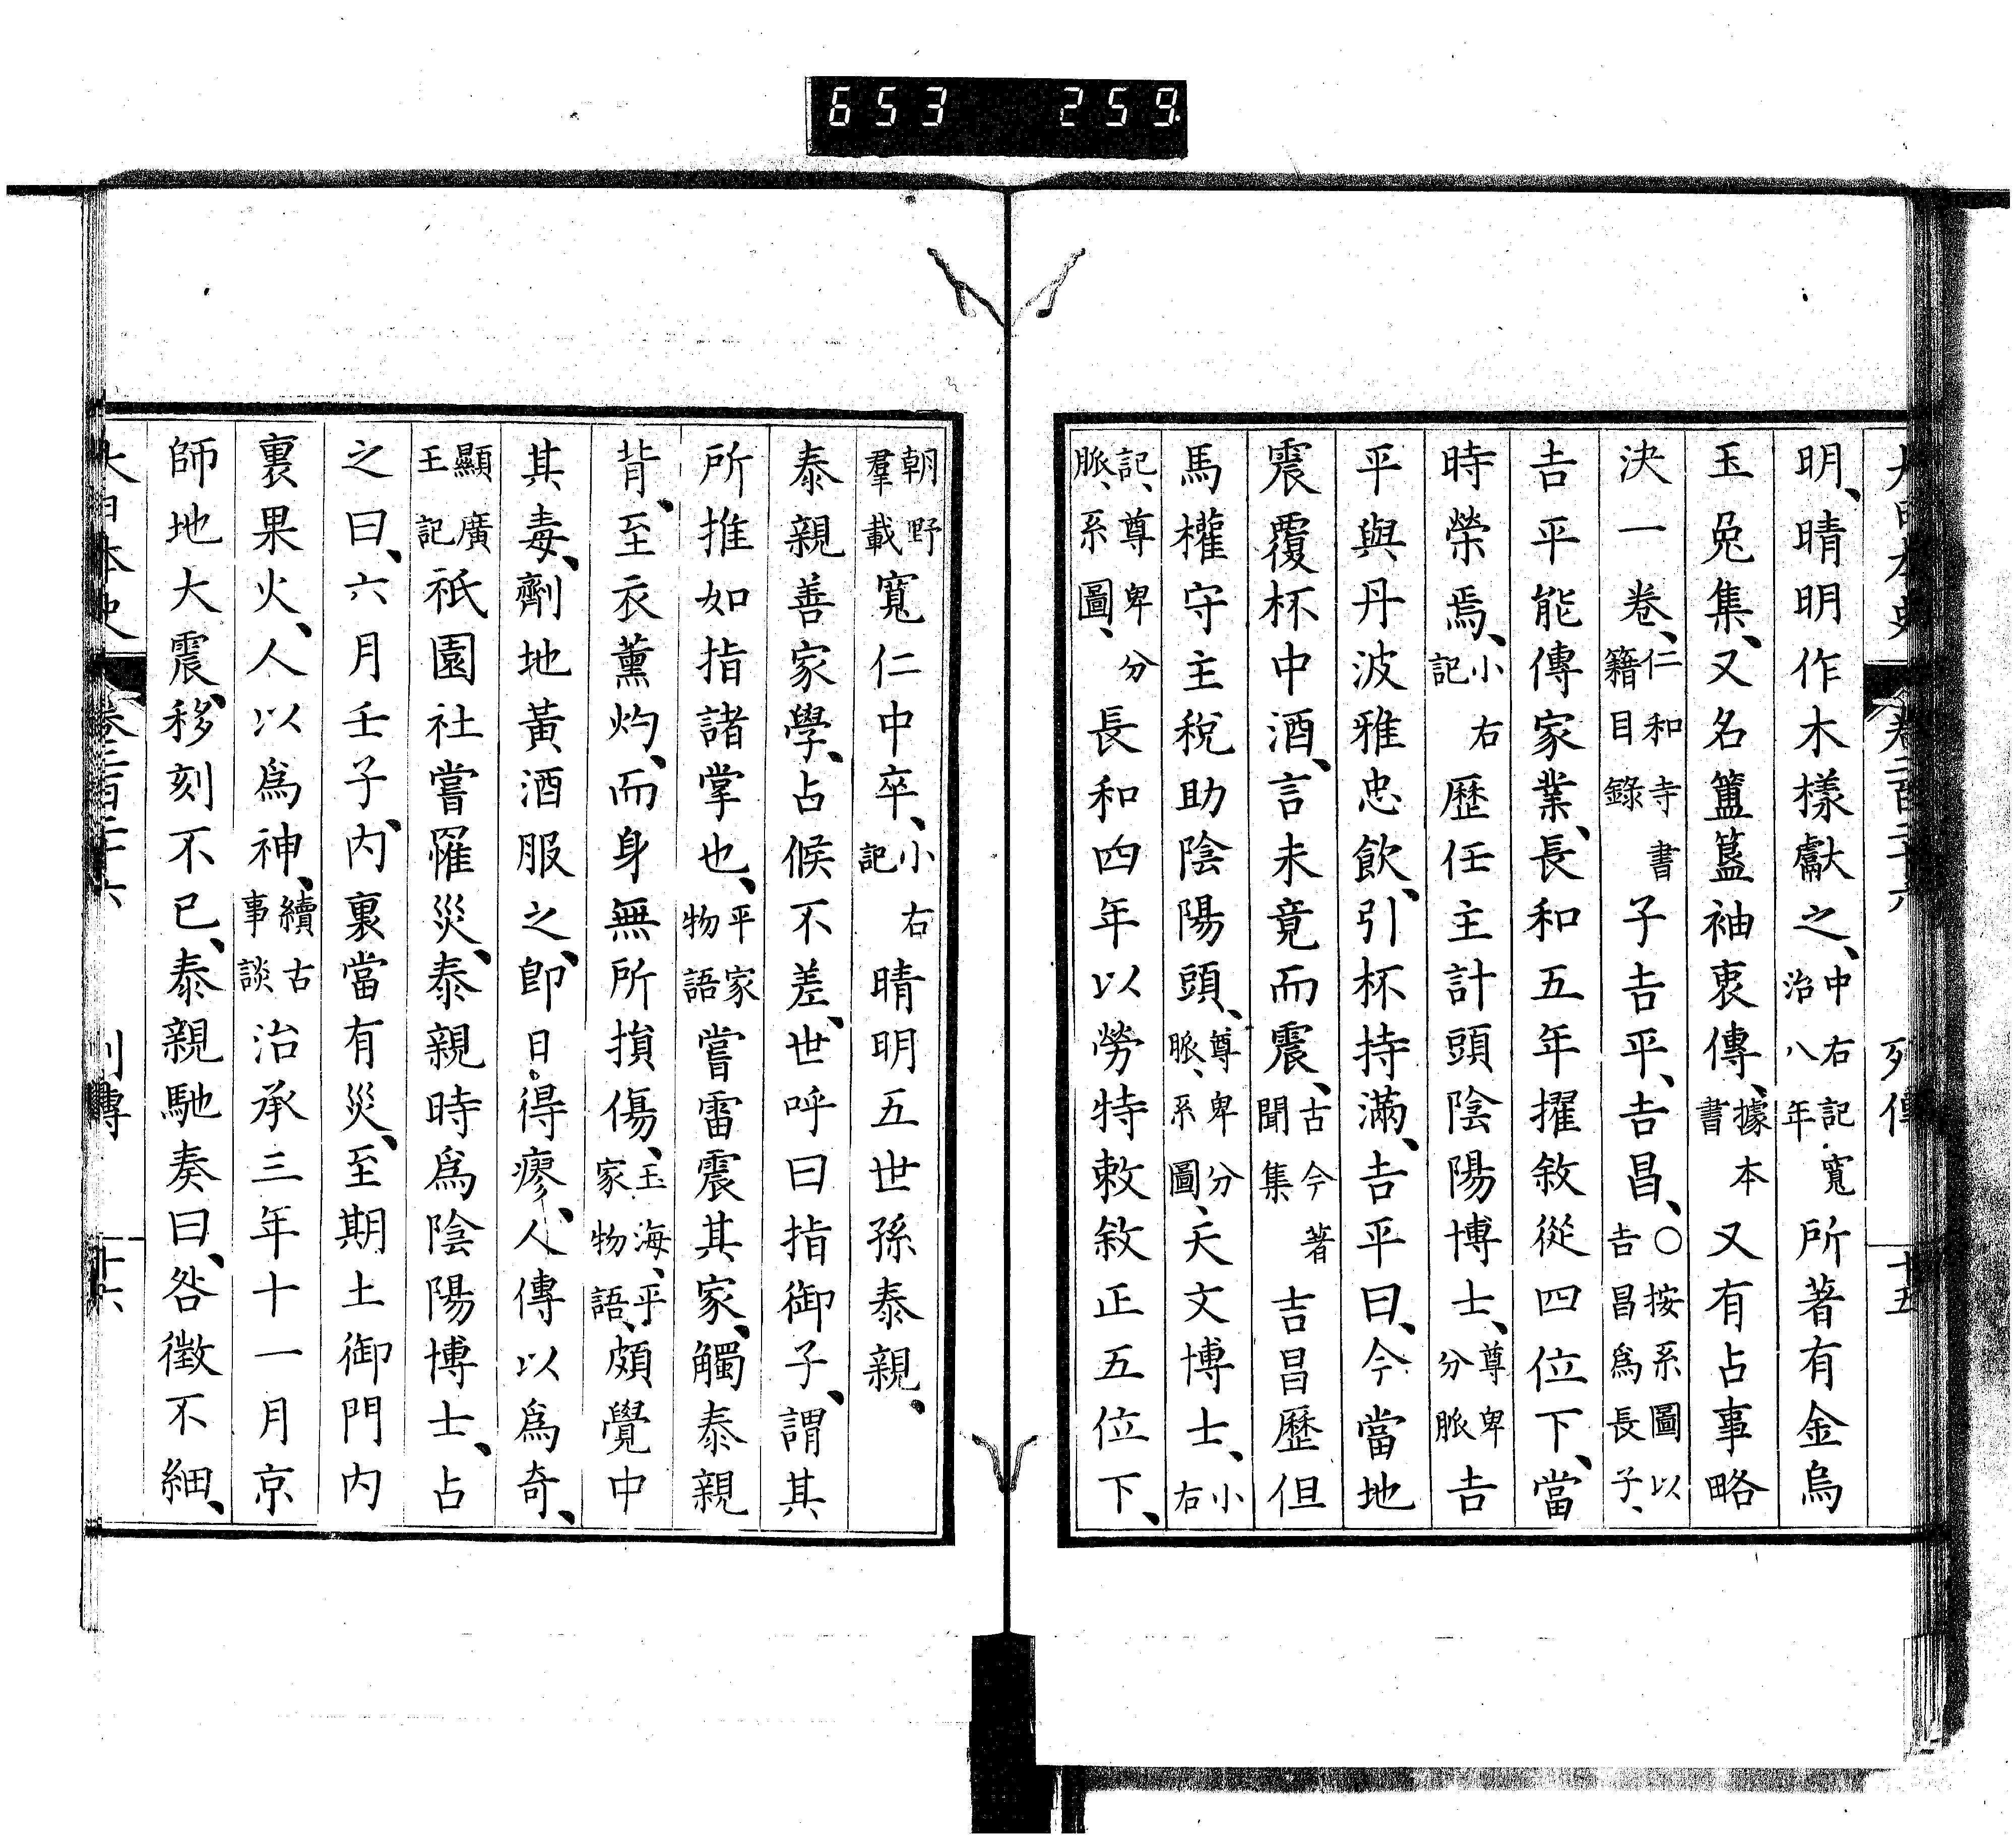 653 259
大日本史 卷二百二十六 列傳 十五
明、晴明作木樣獻之、中右記寬治八年所著有金烏
玉兔集、又名簠簋袖裏傳、據本書又有占事略
決一卷、仁和寺書籍目錄子吉平、吉昌、○按系圖以吉昌爲長子、
吉平能傳家業、長和五年擢敘從四位下、當
時榮焉、小右記歷任主計頭陰陽博士、尊卑分脈吉
平與丹波雅忠飲、引杯持滿、吉平曰、今當地
震覆杯中酒、言未竟而震、古今著聞集吉昌歷但
馬權守主稅助陰陽頭、尊卑分脈、系圖、天文博士、小右
記、尊卑分脈、系圖、長和四年以勞特敕敘正五位下、
朝野羣載寬仁中卒、小右記晴明五世孫泰親、
泰親善家學、占候不差、世呼曰指御子、謂其
所推如指諸掌也、平家物語嘗雷震其家、觸泰親
背、至衣薰灼、而身無所損傷、玉海、平家物語、頗覺中
其毒、劑地黃酒服之、卽日得瘳、人傳以爲奇、
顯廣王記祇園社嘗罹災、泰親時爲陰陽博士、占
之曰、六月壬子、內裏當有災、至期土御門內
裏果火、人以爲神、續古事談治承三年十一月京
師地大震、移刻不已、泰親馳奏曰、咎徵不細、
大日本史 卷二百二十六 列傳 十六